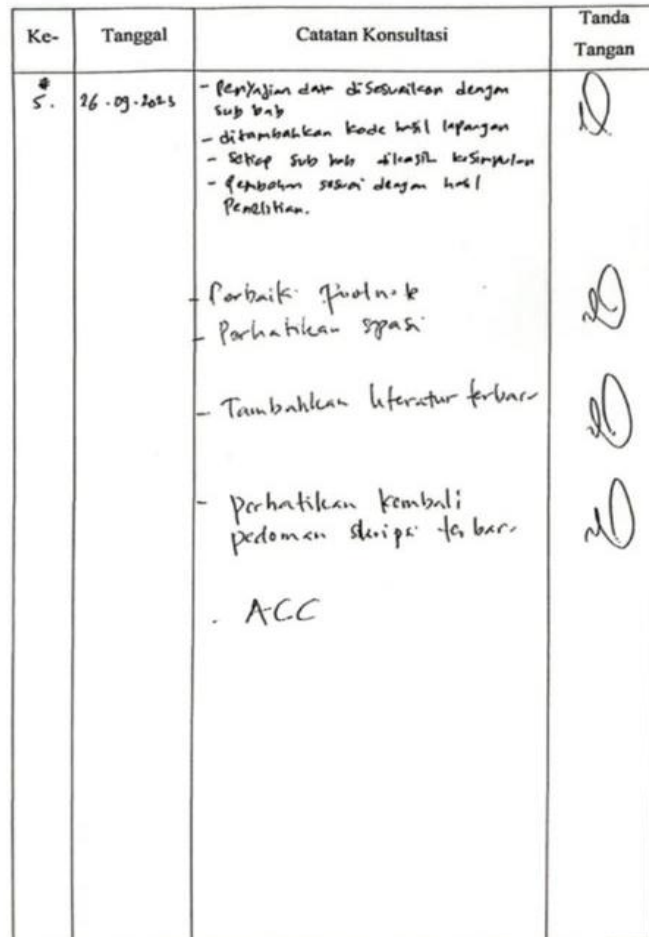 Ke-
Tanggal
Catatan Konsultasi
Tanda
Tangan
5.
26-09-2023
- Penyajian data disesuaikan dengan
sub bab
- ditambahkan kode hasil lapangan
- Setiap sub bab dikasih kesimpulan
- Pembahsn sesuai dengan hasil
Penelitian.
- Perbaiki footnote
- Perhatikan spasi
- Tambahkan literatur terbaru
- perhatikan kembali
pedoman skripsi terbaru
. ACC